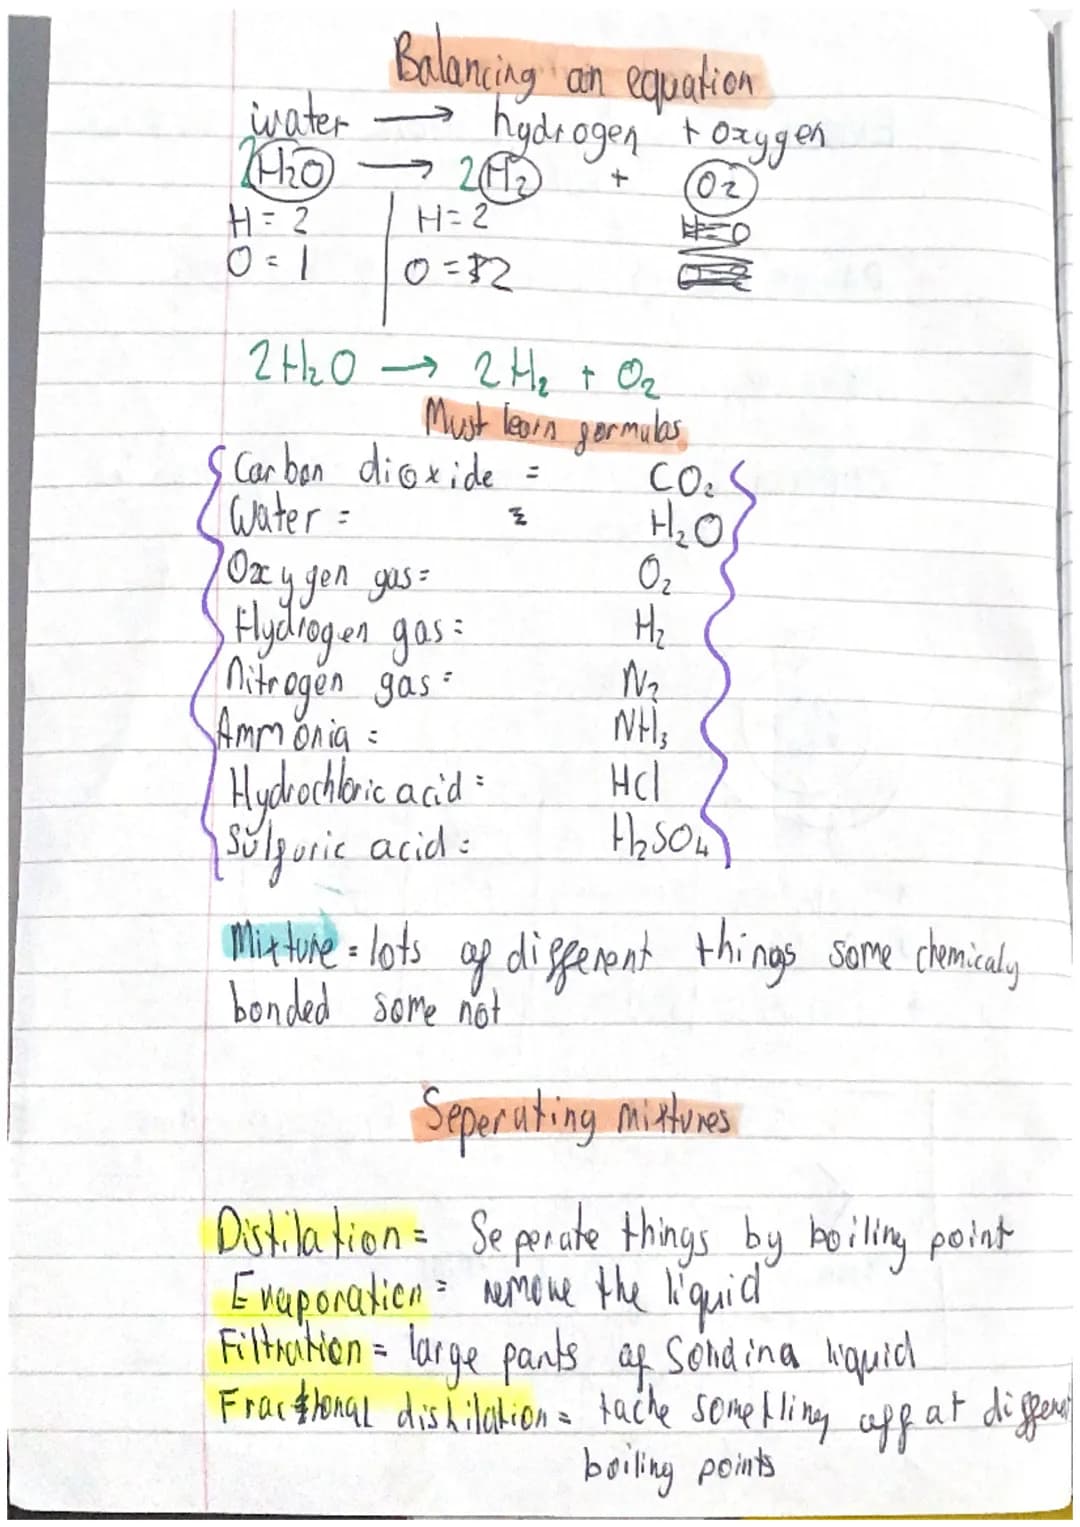 Balancing an equation
water → hydrogen + oxygen
2H₂O → 2H₂ + O₂
H = 2 | H = 2
O = 1 | O = 2
2H₂O → 2H₂ + O₂
Must learn formulas
Carbon dioxide = CO₂
Water = = H₂O
Oxygen gas = O₂
Hydrogen gas = H₂
Nitrogen gas = N₂
Ammonia = NH₃
Hydrochloric acid = HCl
Sulfuric acid = H₂SO₄
Mixture = lots of different things some chemicaly
bonded some not
Seperating mixtures
Distilation = Seperate things by boiling point
Evaporation = remove the liquid
Filtration = large parts of in a liquid
Fractional distilation = something off at different
boiling points